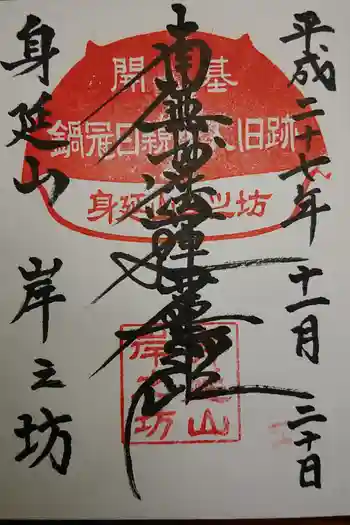 平成二十七年 十一月 二十日
南無妙法蓮華経
身延山 岸之坊
開基
鍋冠日親上人旧跡
身延山岸之坊
身延山
岸之坊